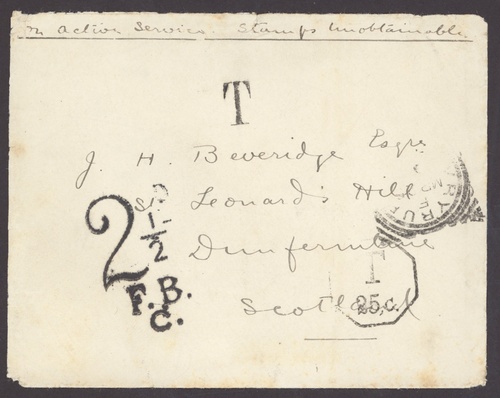 On Active Service. Stamps Unobtainable
T
J. H. Beveridge Esqre
St Leonard's Hill
Dunfermline
Scotland
2 1/2
F.B.
C.
T
25,c.